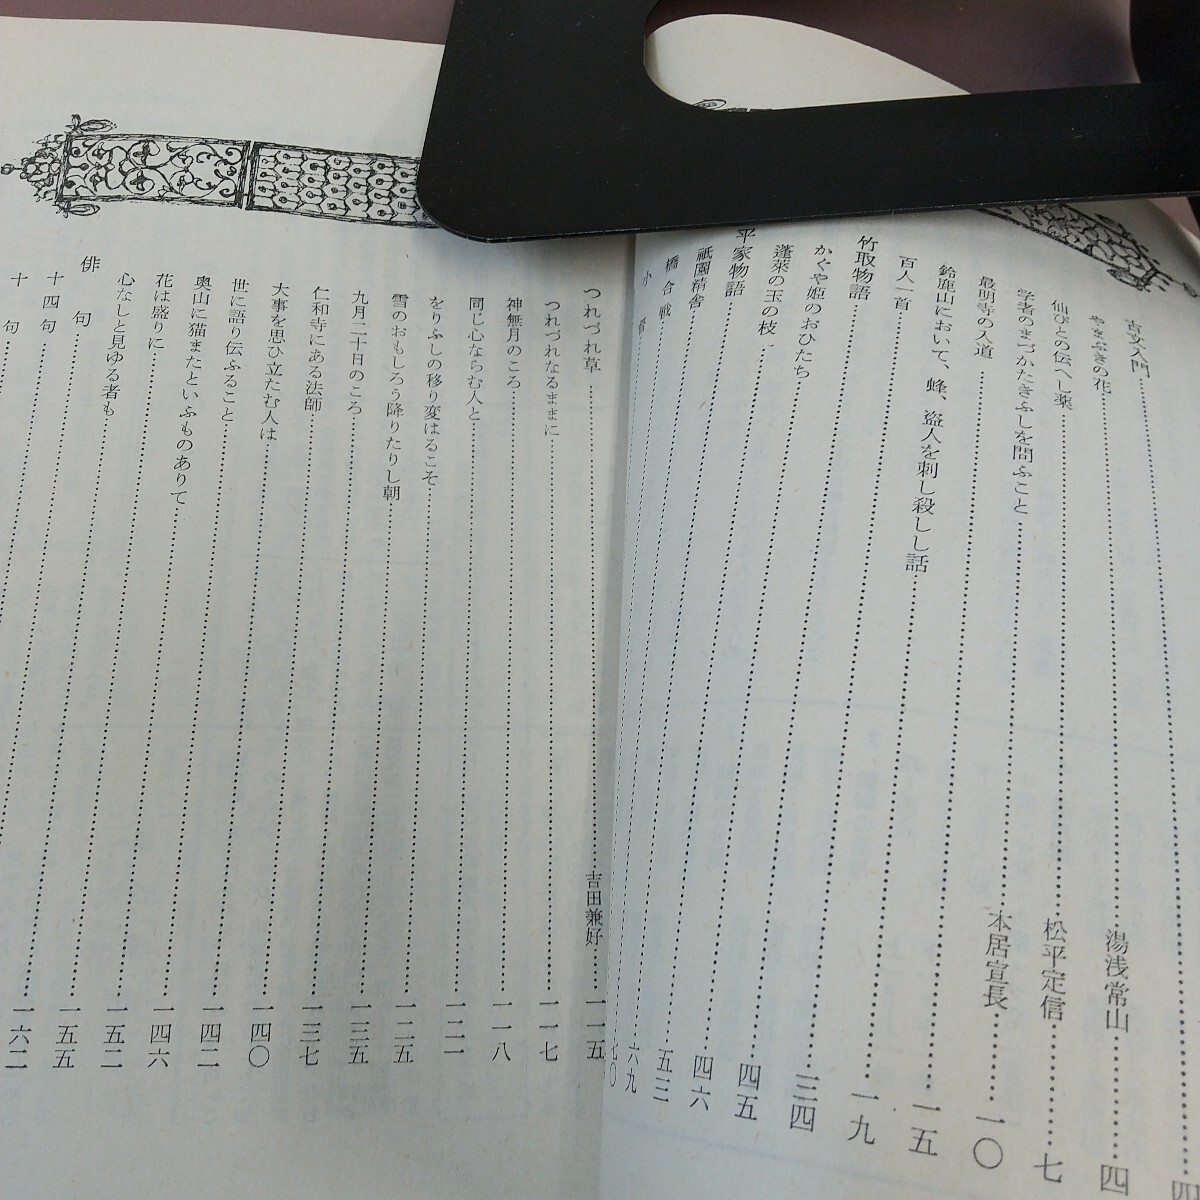 古文入門……四
やまぶきの花……湯浅常山……四
仙びとの伝へし薬……松平定信……七
学者のまづかたきふしを問ふこと……本居宣長……一〇
最明寺の入道……一五
鈴鹿山において、蜂、盗人を刺し殺しし話……一九
百人一首……三四
竹取物語……四五
かぐや姫のおひたち……四六
蓬萊の玉の枝……五三
平家物語……六九
祇園精舎……七〇
橋合戦
小督
つれづれ草……吉田兼好……一一五
つれづれなるままに……一一七
神無月のころ……一一八
同じ心ならむ人と……一二一
をりふしの移り変はるこそ……一二五
雪のおもしろう降りたりし朝……一三五
九月二十日のころ……一三七
仁和寺にある法師……一四〇
大事を思ひ立たむ人は……一四二
世に語り伝ふること……一四六
奥山に猫またといふものありて……一五二
花は盛りに……一五五
心なしと見ゆる者も……一六二
俳句
十四句
十句